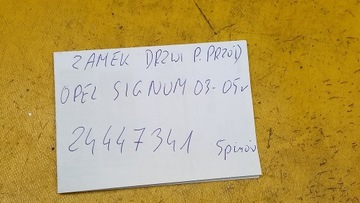 ZAMEK DRZWI P. PRZÓD
OPEL SIGNUM 03-05r
24447341 5pinów